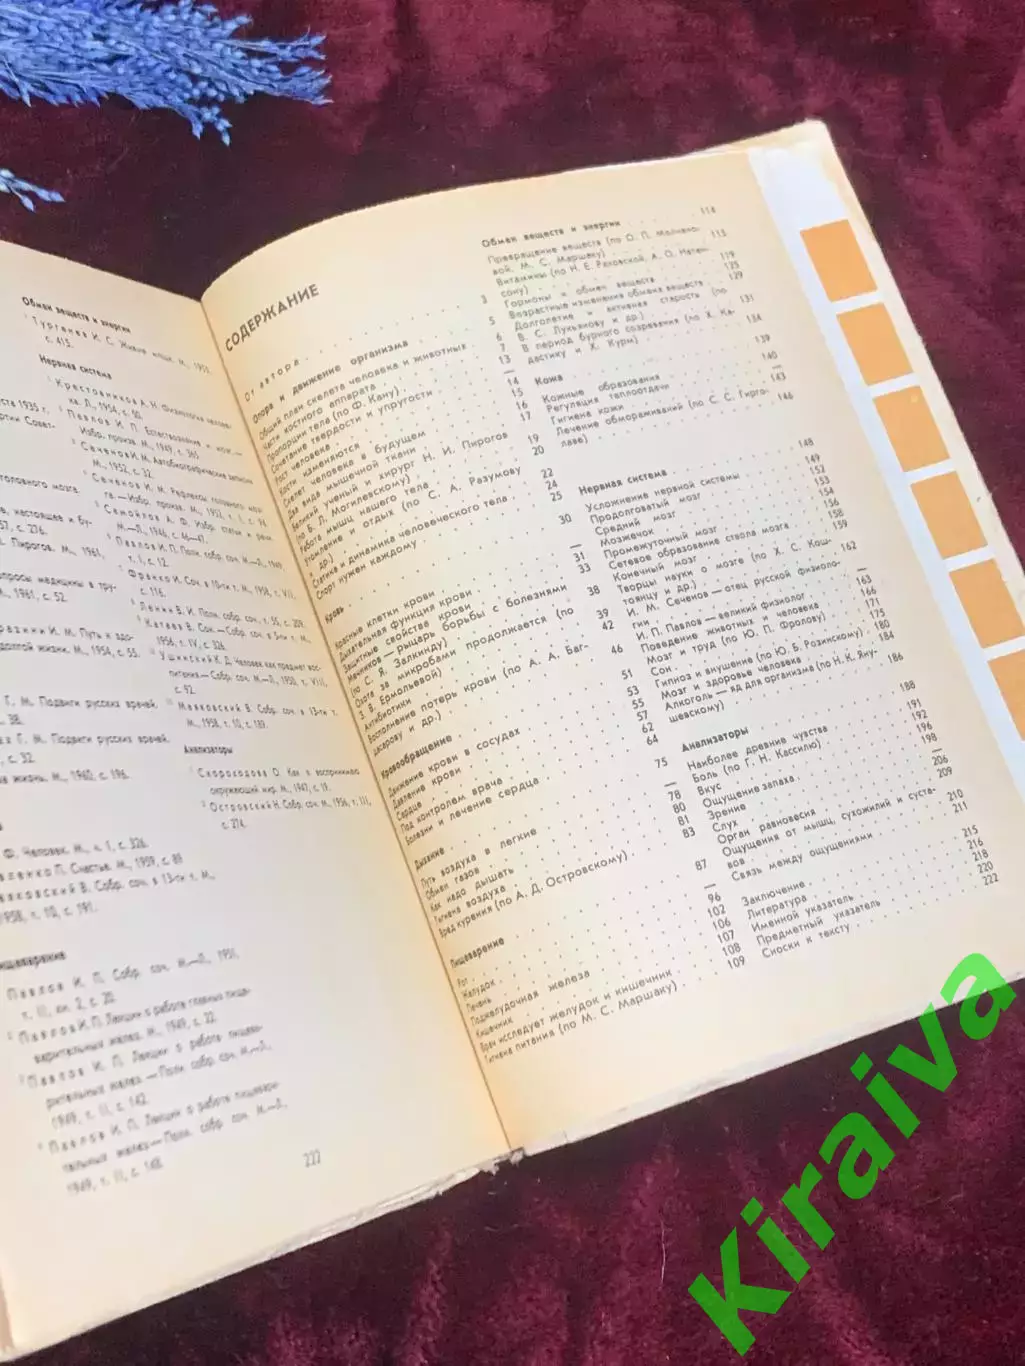 Обмен веществ и энергии
Тургенев И. С. Живые мощи. М., 1953,
с. 415.
Нервная система
Крестовников А. Н. Физиология челове-
ка. Л., 1954, с. 50.
Павлов И. П. Естествознание и мозг.—
Избр. произв. М., 1949, с. 365.
Сеченов И. М. Автобиографические записки.
М., 1952, с. 32.
Сеченов И. М. Рефлексы головного моз-
га.— Избр. произв. М., 1952, т. 1, с. 98.
Самойлов А. Ф. Избр. статьи и речи.
М.—Л., 1946, с. 46—47.
Павлов И. П. Полн. собр. соч. М.—Л., 1949,
т. 1, с. 12.
Франко И. Соч. в 10-ти т. М., 1958, т. VII,
с. 116.
Ленин В. И. Полн. собр. соч. т. 55, с. 209.
Катаев В. Собр. соч. в 5-ти т. М.,
1956, т. IV, с. 326.
Ушинский К. Д. Человек как предмет вос-
питания.— Собр. соч. М.—Л., 1950, т. VIII,
с. 92.
Маяковский В. Собр. соч. в 13-ти т.
М., 1958, т. 10, с. 189.
Анализаторы
Скороходова О. Как я воспринимаю
окружающий мир. М., 1947, с. 19.
Островский Н. Собр. соч. М., 1956, т. III,
с. 274.
ста 1935 г.
ртии Совет-
головного мозга.
е, настоящее и бу-
57, с. 276.
. Пирогов. М., 1961,
опросы медицины в тру-
М., 1961, с. 52.
разини И. М. Путь к здо-
долгой жизни. М., 1954, с. 55.
Г. М. Подвиги русских врачей.
с. 38.
Г. М. Подвиги русских врачей.
с. 32.
жизнь. М., 1962, с. 196.
Ф. Человек. М., ч. 1, с. 326.
вленко П. Счастье. М., 1959, с. 85
яковский В. Собр. соч. в 13-ти т. М.,
1958, т. 10, с. 191.
ищеварение
Павлов И. П. Собр. соч. М.—Л., 1951,
т. II, кн. 2, с. 20.
Павлов И. П. Лекции о работе главных пище-
варительных желез. М., 1949, с. 22.
Павлов И. П. Лекции о работе пищева-
рительных желез.— Полн. собр. соч. М.—Л.,
1949, т. II, с. 142.
Павлов И. П. Лекции о работе пищевари-
тельных желез— Полн. собр. соч. М.—Л.,
1949, т. II, с. 148.
222
СОДЕРЖАНИЕ
От автора 3
Опора и движение организма 5
Общий план скелета человека и животных 6
Части костного аппарата 7
Пропорции тела (по Ф. Кану) 13
Сочетание твердости и упругости 14
Рост человека 15
Кости изменяются 16
Скелет человека в будущем 17
Два вида мышечной ткани
Великий ученый и хирург Н. И. Пирогов
(по Б. Л. Могилевскому) 19
Работа мышц нашего тела 20
Утомление и отдых (по С. А. Разумову
и др.) 22
Статика и динамика человеческого тела 24
Спорт нужен каждому 25
Кровь 30
Красные клетки крови —
Дыхательная функция крови 31
Защитные свойства крови 33
Мечников — рыцарь борьбы с болезнями
(по С. Я. Залкинду) 38
Охота за микробами продолжается (по
З. В. Ермольевой) 39
Антибиотики 42
Восполнение потерь крови (по А. А. Баг-
дасарову и др.) 46
Кровообращение 51
Движение крови в сосудах 53
Давление крови 55
Сердце 57
Под контролем врача 62
Болезни и лечение сердца 64
Дыхание 75
Путь воздуха в легкие —
Обмен газов 78
Как надо дышать 80
Гигиена воздуха 81
Вред курения (по А. Д. Островскому) 83
Пищеварение 87
Рот —
Желудок 96
Печень 102
Поджелудочная железа 106
Кишечник 107
Врач исследует желудок и кишечник 108
Гигиена питания (по М. С. Маршаку) 109
Обмен веществ и энергии 114
Превращение веществ (по О. П. Молчано-
вой, М. С. Маршаку) 115
Витамины (по Н. Е. Раковской, А. О. Натан-
сону) 119
Гормоны и обмен веществ 125
Возрастные изменения обмена веществ 129
Долголетие и активная старость (по
В. С. Лукьянову и др.) 131
В период бурного созревания (по Х. Ка-
дастику и Х. Курм) 134
Кожа 139
Кожные образования 140
Регуляция теплоотдачи
Гигиена кожи 143
Лечение обмораживаний (по С. С. Гирго-
лаве) 146
Нервная система 148
Усложнение нервной системы 149
Продолговатый мозг 152
Средний мозг 153
Мозжечок 154
Промежуточный мозг 156
Сетевое образование ствола мозга 158
Конечный мозг 159
Творцы науки о мозге (по Х. С. Кош-
тоянцу и др.) 162
И. М. Сеченов — отец русской физиоло-
гии —
И. П. Павлов — великий физиолог 163
Поведение животных и человека 166
Мозг и труд (по Ю. П. Фролову) 171
Сон 175
Гипноз и внушение (по Ю. Б. Розинскому) 180
Мозг и здоровье человека 184
Алкоголь — яд для организма (по Н. К. Яну-
шевскому) 186
Анализаторы 188
Наиболее древние чувства 191
Боль (по Г. Н. Кассилю) 192
Вкус 196
Ощущение запаха 198
Зрение —
Слух 206
Орган равновесия 209
Ощущения от мышц, сухожилий и суста-
вов 210
Связь между ощущениями 211
Заключение 215
Литература 216
Именной указатель 218
Предметный указатель 220
Сноски к тексту 222
Kiraiva